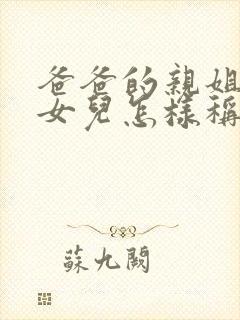 爸爸的親姐
女兒怎樣稱
蘇九闕